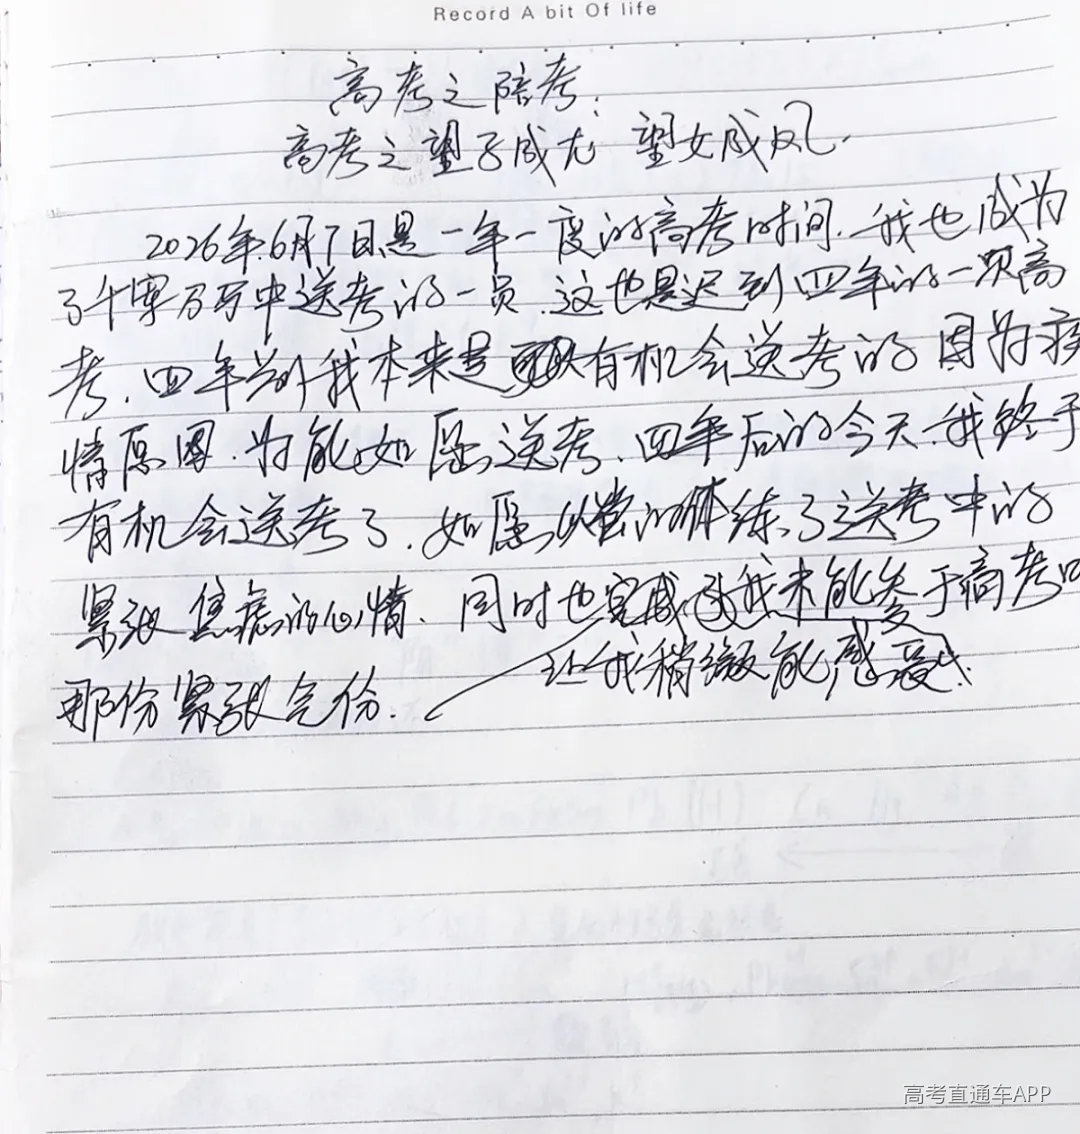 Record A bit Of life
高考之陪考:
高考之望子成龙 望女成凤.
2026年.6月7日是一年一度的高考时间.我也成为
了千军万马中送考的一员.这也是迟到四年的一次高
考.四年前我本来是有机会送考的因为疫
情原因.为能如愿送考.四年后的今天.我终于
有机会送考了.如愿以偿的体练了送考中的
紧张焦虑的心情.同时也完成了我未能参于高考
让我稍微能感受.
那份紧张气份.
高考直通车APP